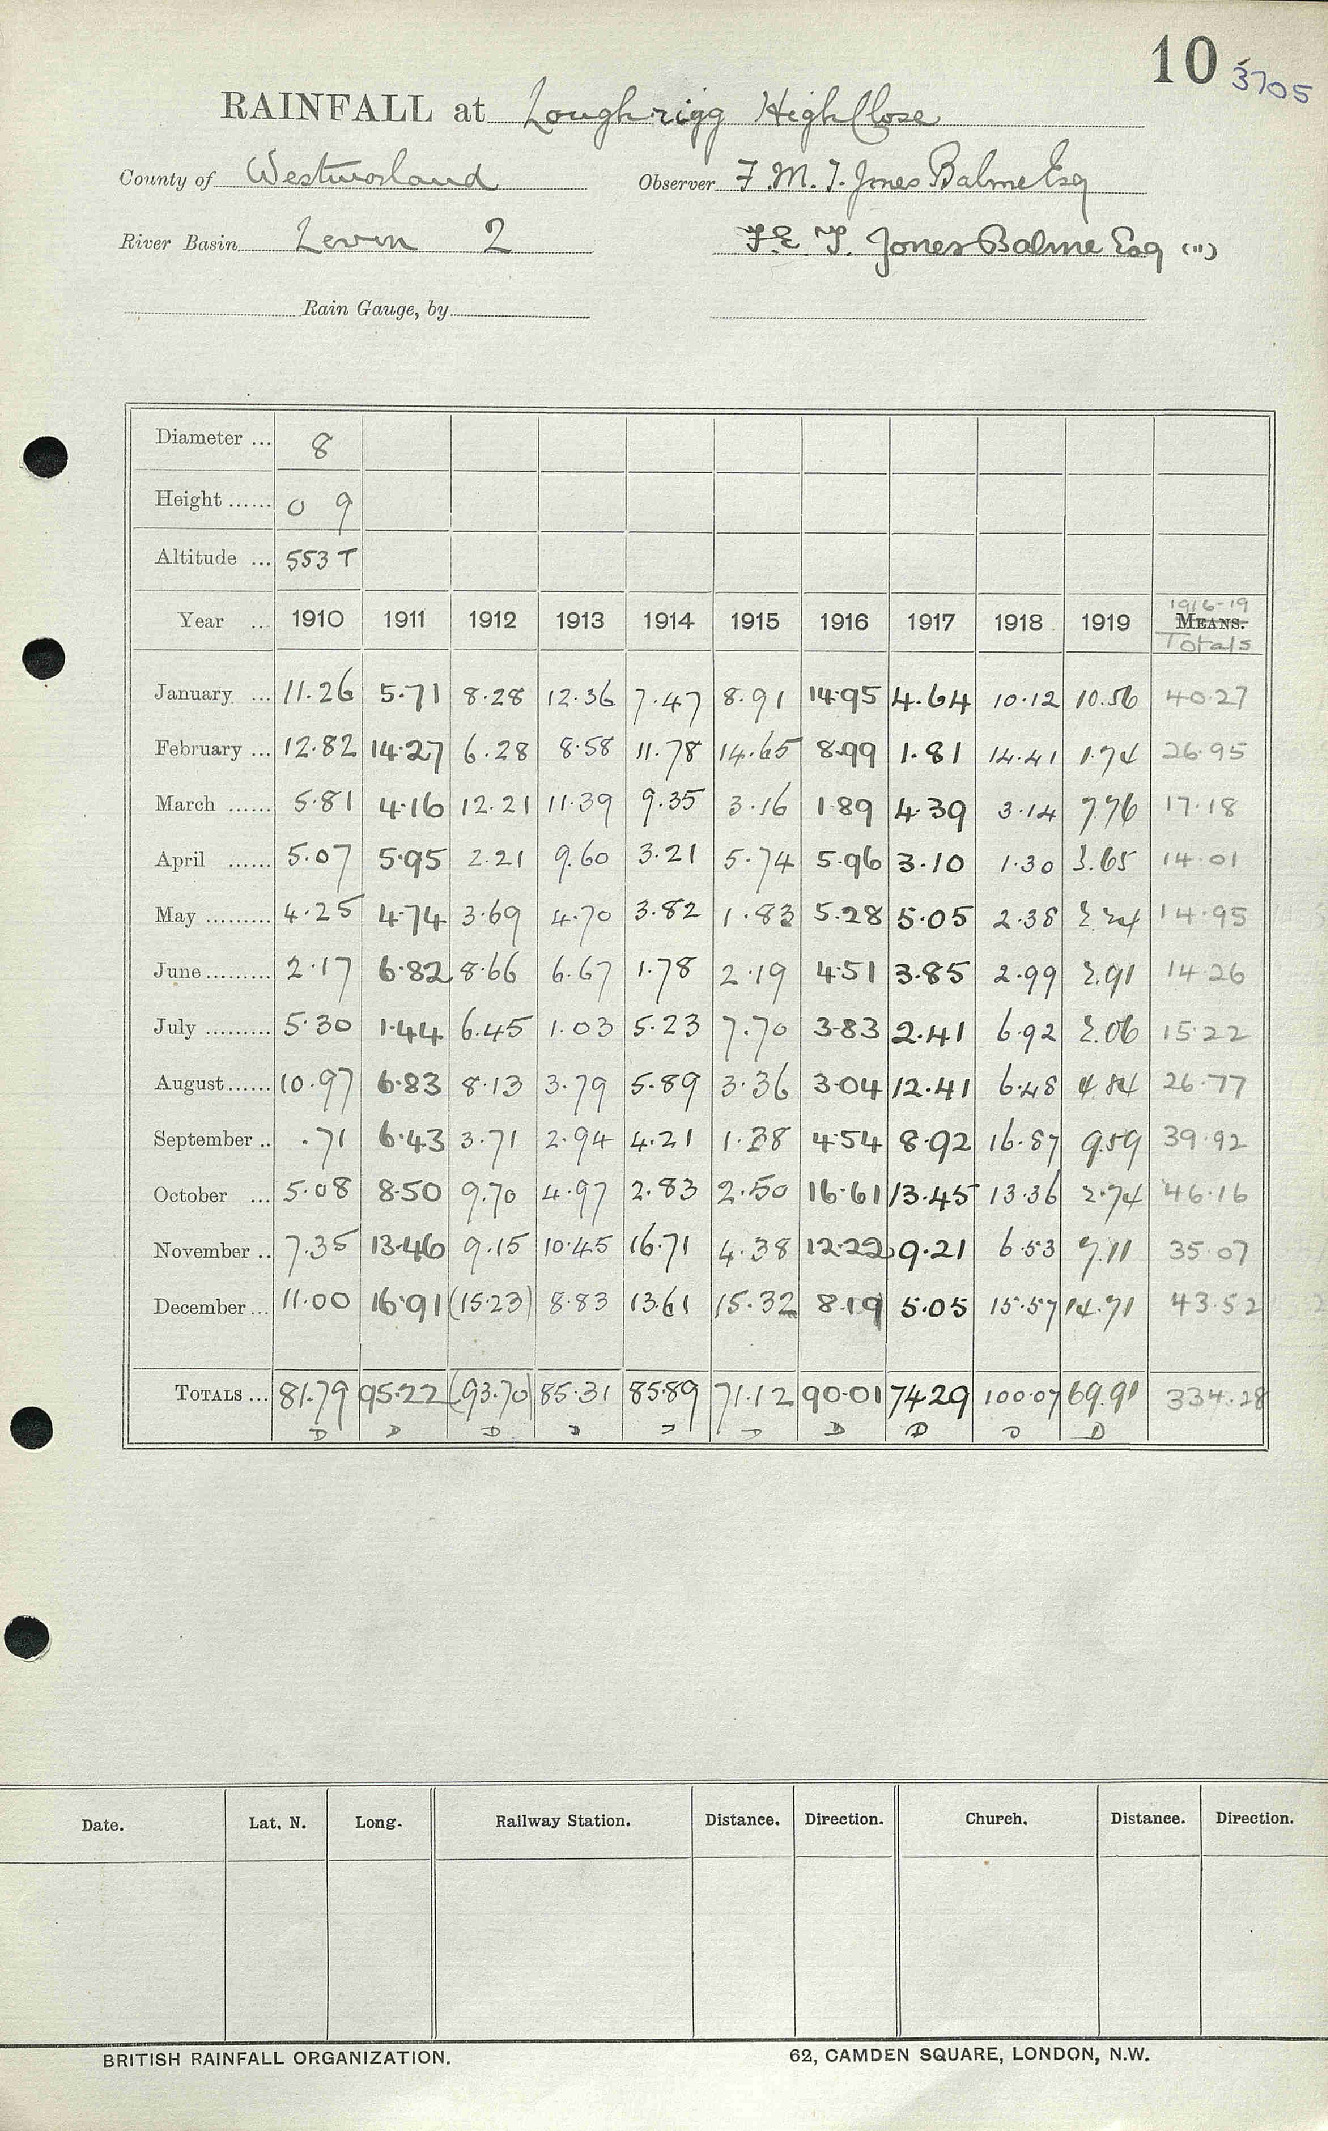 10
3705
RAINFALL at Loughrigg High Close
County of Westmorland Observer F. M. T. Jones Balme Esq
River Basin Leven 2 F. E. T. Jones Balme Esq (")
Rain Gauge, by
Diameter ... 8
Height ...... 0 9
Altitude ... 553 T
1916-19
Year ... 1910 1911 1912 1913 1914 1915 1916 1917 1918 1919 MEANS.
Totals
January ... 11.26 5.71 8.28 12.36 7.47 8.91 14.95 4.64 10.12 10.56 40.27
February ... 12.82 14.27 6.28 8.58 11.78 14.65 8.99 1.81 14.41 1.74 26.95
March ...... 5.81 4.16 12.21 11.39 9.35 3.16 1.89 4.39 3.14 7.76 17.18
April ...... 5.07 5.95 2.21 9.60 3.21 5.74 5.96 3.10 1.30 3.65 14.01
May ......... 4.25 4.74 3.69 4.70 3.82 1.83 5.28 5.05 2.38 2.24 14.95
June ......... 2.17 6.82 8.66 6.67 1.78 2.19 4.51 3.85 2.99 2.91 14.26
July ......... 5.30 1.44 6.45 1.03 5.23 7.70 3.83 2.41 6.92 2.06 15.22
August ...... 10.97 6.83 8.13 3.79 5.89 3.36 3.04 12.41 6.48 4.84 26.77
September .. .71 6.43 3.71 2.94 4.21 1.38 4.54 8.92 16.87 9.59 39.92
October ... 5.08 8.50 9.70 4.97 2.83 2.50 16.61 13.45 13.36 2.74 46.16
November .. 7.35 13.46 9.15 10.45 16.71 4.38 12.22 9.21 6.53 7.11 35.07
December ... 11.00 16.91 (15.23) 8.83 13.61 15.32 8.19 5.05 15.57 14.71 43.52
TOTALS ... 81.79 95.22 (93.70) 85.31 85.89 71.12 90.01 74.29 100.07 69.91 334.28
D D D D D D D D D D
Date. Lat. N. Long. Railway Station. Distance. Direction. Church. Distance. Direction.
BRITISH RAINFALL ORGANIZATION. 62, CAMDEN SQUARE, LONDON, N.W.